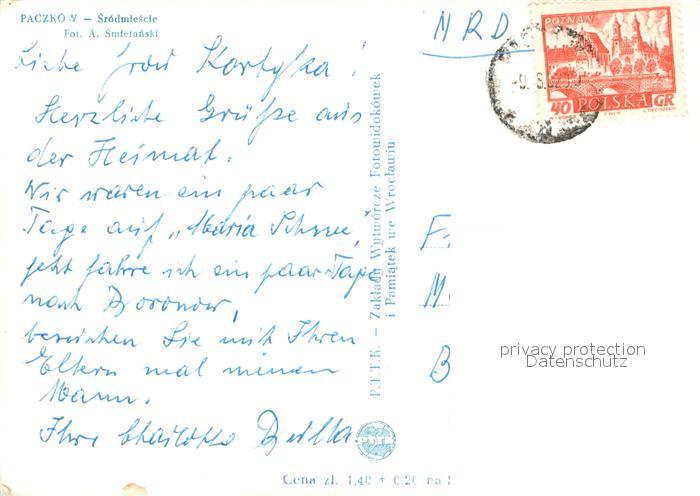 PACZKÓW — Śródmieście
Fot. A. Śmietański
MRD
POZNAŃ
40 POLSKA GR
Liebe Frau Kortyka!
Herzliche Grüße aus
der Heimat.
Wir waren ein paar
Tage auf „Maria Schnee,"
jetzt fahre ich ein paar Tage
nach Boronow,
besuchen Sie mit Ihren
Eltern mal meinen
Mann.
Ihre Charlotte
P.T.T.K. — Zakłady Wytwórcze Fotowidokówek
i Pamiątek we Wrocławiu
F
M
B
privacy protection
Datenschutz
PTTK
Cena zł. 1,40 + 0.20 na